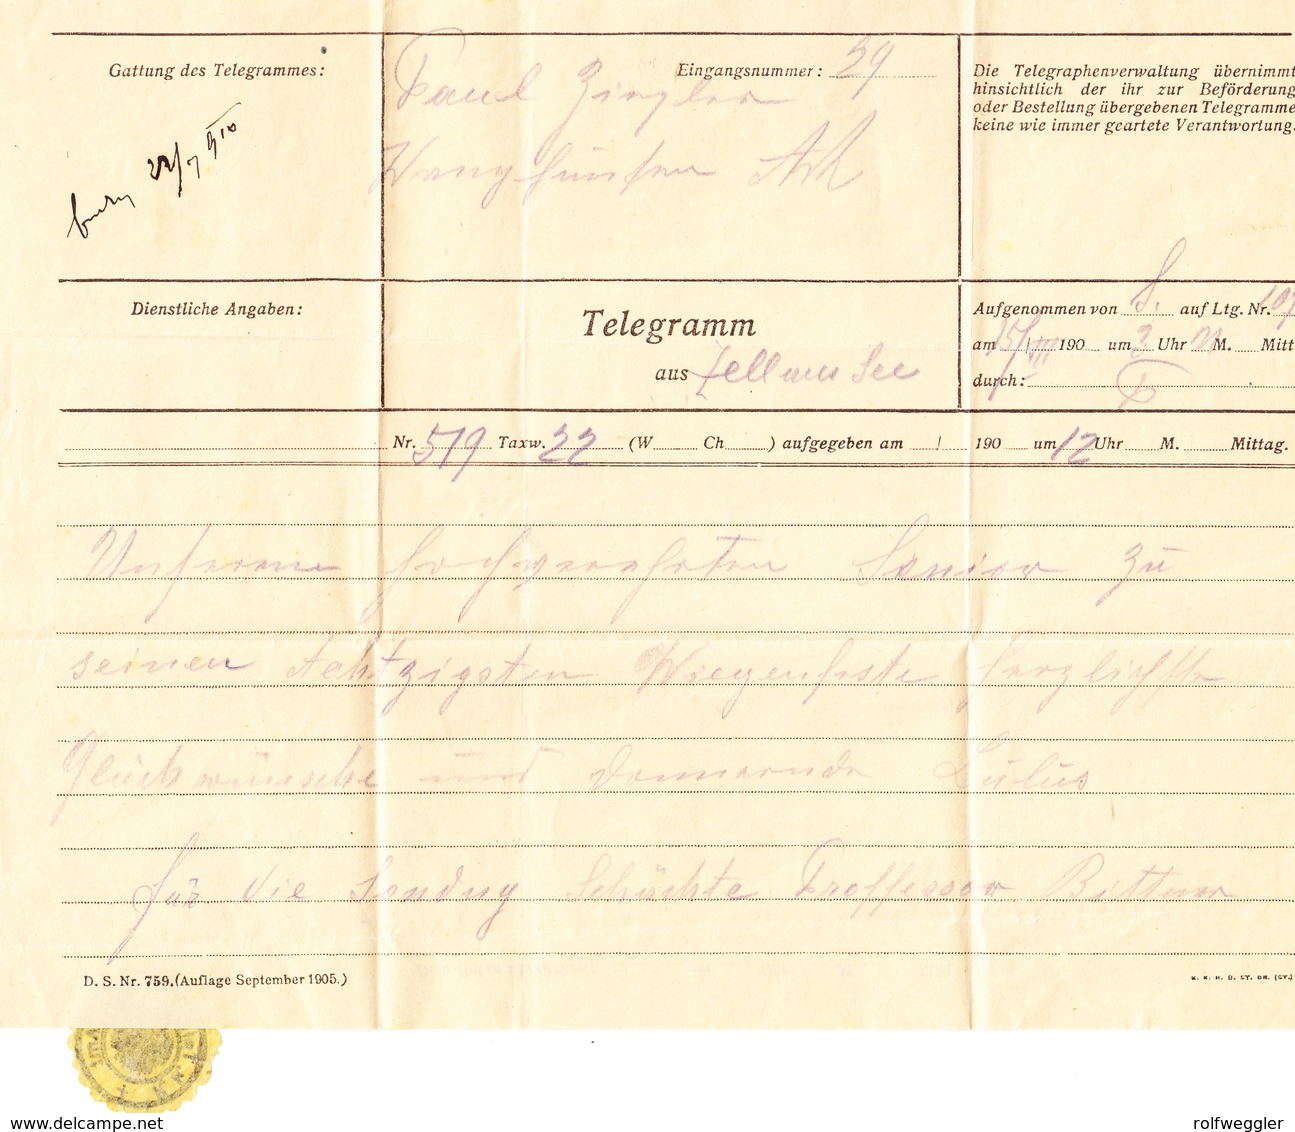 Gattung des Telegrammes:
Paul Ziegler
Eingangsnummer: 29
Die Telegraphenverwaltung übernimmt
hinsichtlich der ihr zur Beförderung
oder Bestellung übergebenen Telegramme
keine wie immer geartete Verantwortung.
Dienstliche Angaben:
Telegramm
aus Zell am See
Aufgenommen von S. auf Ltg. Nr. 107
am 15/VII 190 um 2 Uhr M. Mitt
durch:
Nr. 519 Taxw. 22 (W Ch ) aufgegeben am / 190 um 12 Uhr M. Mittag.
Unserem hochverehrten Senior zu
seinen Achtzigsten Wiegenfeste herzlichste
Glückwünsche und donnernde Lulus
für die Sendug Schückte Proffessor Bittner
D. S. Nr. 759. (Auflage September 1905.)
K. K. H. U. ST. DR. (GY.)
www.delcampe.net
rolfweggler